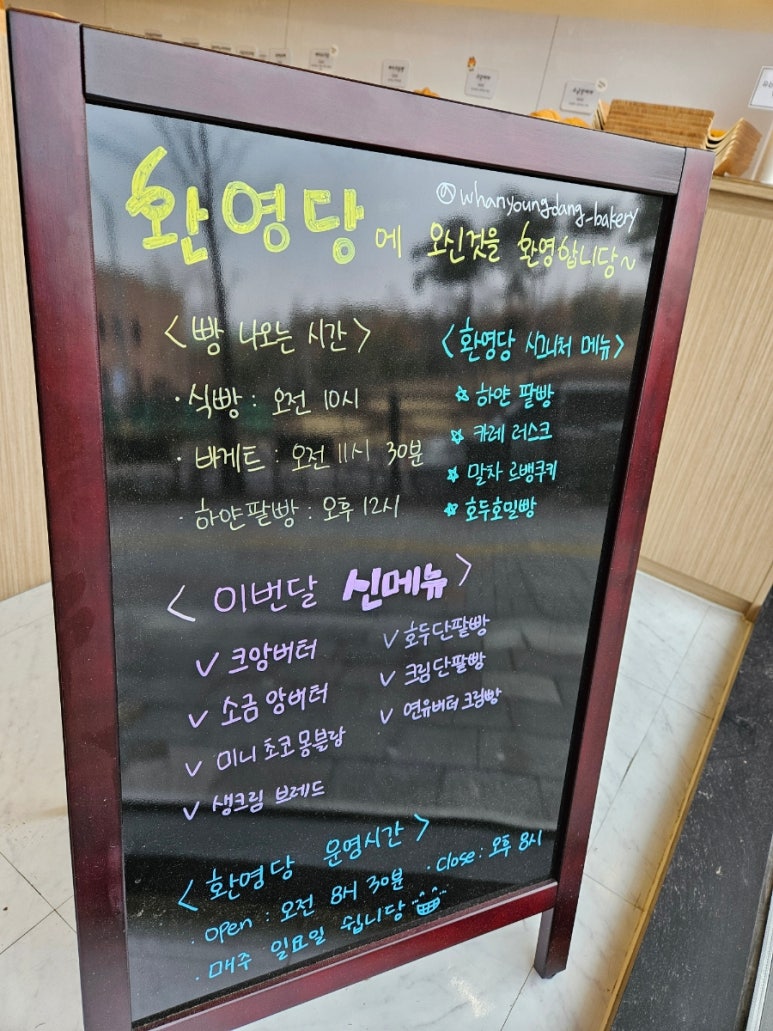 @whanyoungdang_bakery
환영당에 오신것을 환영합니당~
<빵 나오는 시간>
· 식빵 : 오전 10시
· 바게트 : 오전 11시 30분
· 하얀팥빵 : 오후 12시
<환영당 시그니처 메뉴>
☆ 하얀 팥빵
☆ 카레 러스크
☆ 말차 르뱅쿠키
☆ 호두호밀빵
<이번달 신메뉴>
✓ 크앙버터
✓ 소금 앙버터
✓ 미니 초코 몽블랑
✓ 생크림 브레드
✓ 호두단팥빵
✓ 크림단팥빵
✓ 연유버터크림빵
<환영당 운영시간>
· open : 오전 8시 30분 · close : 오후 8시
· 매주 일요일 쉽니당